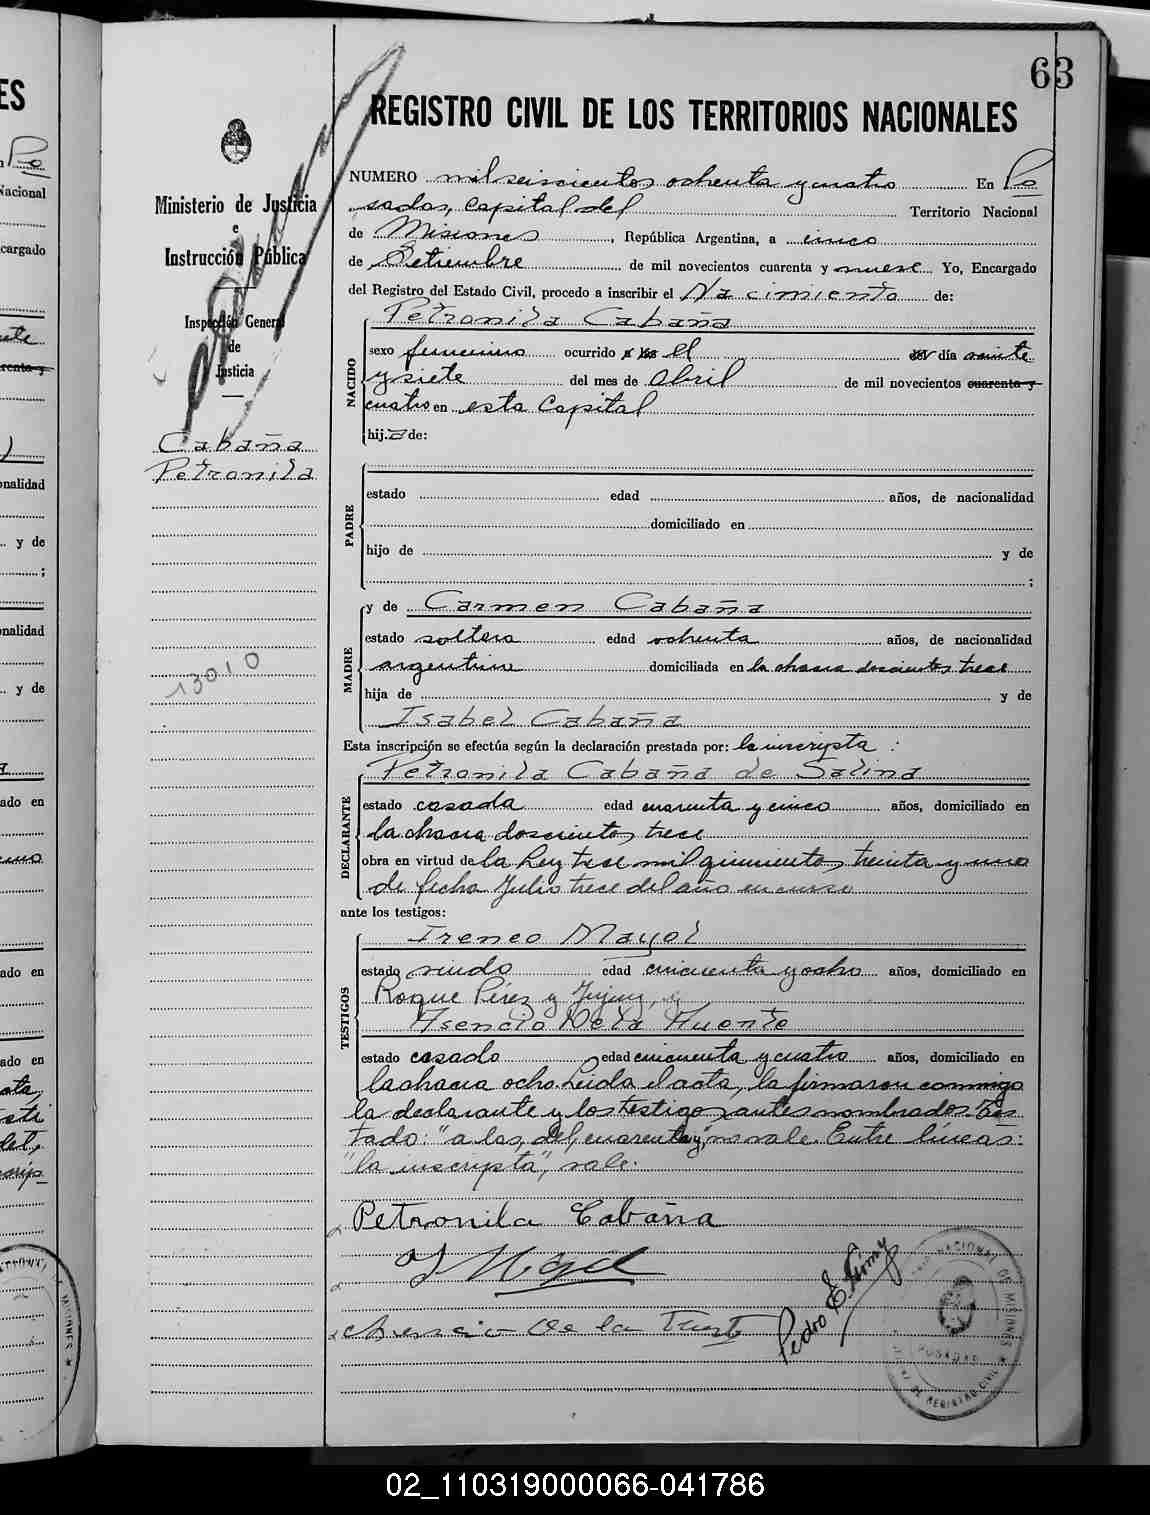 63
REGISTRO CIVIL DE LOS TERRITORIOS NACIONALES
Ministerio de Justicia
e
Instrucción Pública
Inspección General
de
Justicia
Cabaña
Petronila
13010
NUMERO mil seiscientos ochenta y cuatro En Po
sadas, capital del Territorio Nacional
de Misiones, República Argentina, a cinco
de Setiembre de mil novecientos cuarenta y nueve Yo, Encargado
del Registro del Estado Civil, procedo a inscribir el Nacimiento de:
Petronila Cabaña
NACIDO
sexo femenino ocurrido a las el del día veinte
y siete del mes de Abril de mil novecientos cuarenta y
cuatro en esta Capital
hija de:
PADRE
estado edad años, de nacionalidad
domiciliado en
hijo de y de
;
MADRE
y de Carmen Cabaña
estado soltera edad ochenta años, de nacionalidad
argentina domiciliada en la chacra doscientos trece
hija de y de
Isabel Cabaña
Esta inscripción se efectúa según la declaración prestada por: la inscripta :
DECLARANTE
Petronila Cabaña de Salina
estado casada edad cuarenta y cinco años, domiciliado en
la chacra doscientos trece
obra en virtud de la Ley trece mil quinientos treinta y uno
de fecha Julio trece del año en curso
ante los testigos:
TESTIGOS
Ireneo Mayol
estado viudo edad cincuenta y ocho años, domiciliado en
Roque Pérez y Jujuy,
Asencio De la Fuente
estado casado edad cincuenta y cuatro años, domiciliado en
la chacra ocho. Leida el acta, la firmaron conmigo
la declarante y los testigos antes nombrados. Tes
tado: "a las, del, cuarenta y", no vale. Entre líneas:
"la inscripta", vale.
Petronila Cabaña
Asencio De la Fuente
Pedro E.
NACIONAL DE MISIONES
POSADAS
REGISTRO CIVIL
02_110319000066-041786